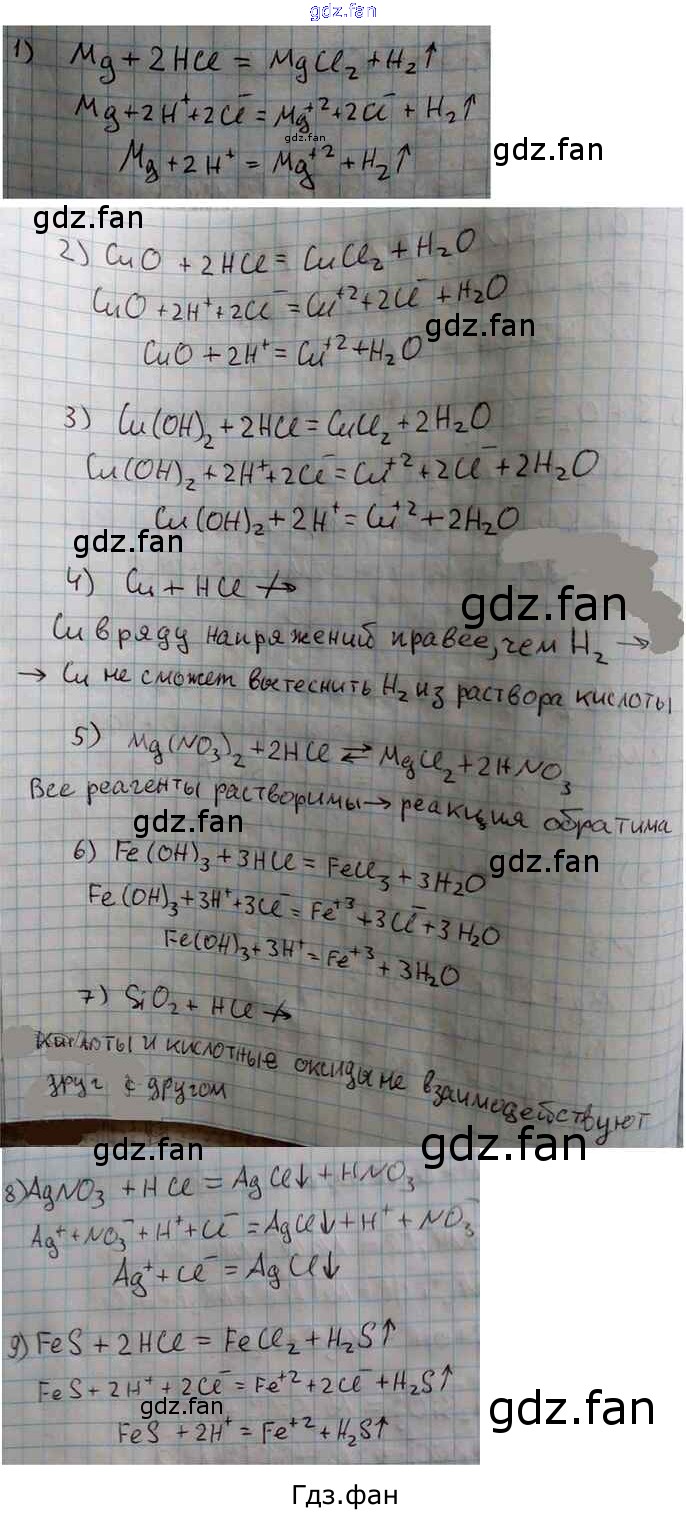 gdz.fan
1) Mg + 2HCl = MgCl₂ + H₂↑
Mg + 2H⁺ + 2Cl⁻ = Mg⁺² + 2Cl⁻ + H₂↑
gdz.fan
Mg + 2H⁺ = Mg⁺² + H₂↑
gdz.fan
gdz.fan
2) CuO + 2HCl = CuCl₂ + H₂O
CuO + 2H⁺ + 2Cl⁻ = Cu⁺² + 2Cl⁻ + H₂O
gdz.fan
CuO + 2H⁺ = Cu⁺² + H₂O
3) Cu(OH)₂ + 2HCl = CuCl₂ + 2H₂O
Cu(OH)₂ + 2H⁺ + 2Cl⁻ = Cu⁺² + 2Cl⁻ + 2H₂O
Cu(OH)₂ + 2H⁺ = Cu⁺² + 2H₂O
gdz.fan
4) Cu + HCl ↛
gdz.fan
Cu в ряду напряжений правее, чем H₂ →
→ Cu не сможет вытеснить H₂ из раствора кислоты
5) Mg(NO₃)₂ + 2HCl ⇄ MgCl₂ + 2HNO₃
Все реагенты растворимы → реакция обратима
gdz.fan
6) Fe(OH)₃ + 3HCl = FeCl₃ + 3H₂O
gdz.fan
Fe(OH)₃ + 3H⁺ + 3Cl⁻ = Fe⁺³ + 3Cl⁻ + 3H₂O
Fe(OH)₃ + 3H⁺ = Fe⁺³ + 3H₂O
7) SiO₂ + HCl ↛
Кислоты и кислотные оксиды не взаимодействуют
друг с другом
gdz.fan
gdz.fan
8) AgNO₃ + HCl = AgCl↓ + HNO₃
Ag⁺ + NO₃⁻ + H⁺ + Cl⁻ = AgCl↓ + H⁺ + NO₃⁻
Ag⁺ + Cl⁻ = AgCl↓
9) FeS + 2HCl = FeCl₂ + H₂S↑
FeS + 2H⁺ + 2Cl⁻ = Fe⁺² + 2Cl⁻ + H₂S↑
gdz.fan
gdz.fan
FeS + 2H⁺ = Fe⁺² + H₂S↑
Гдз.фан